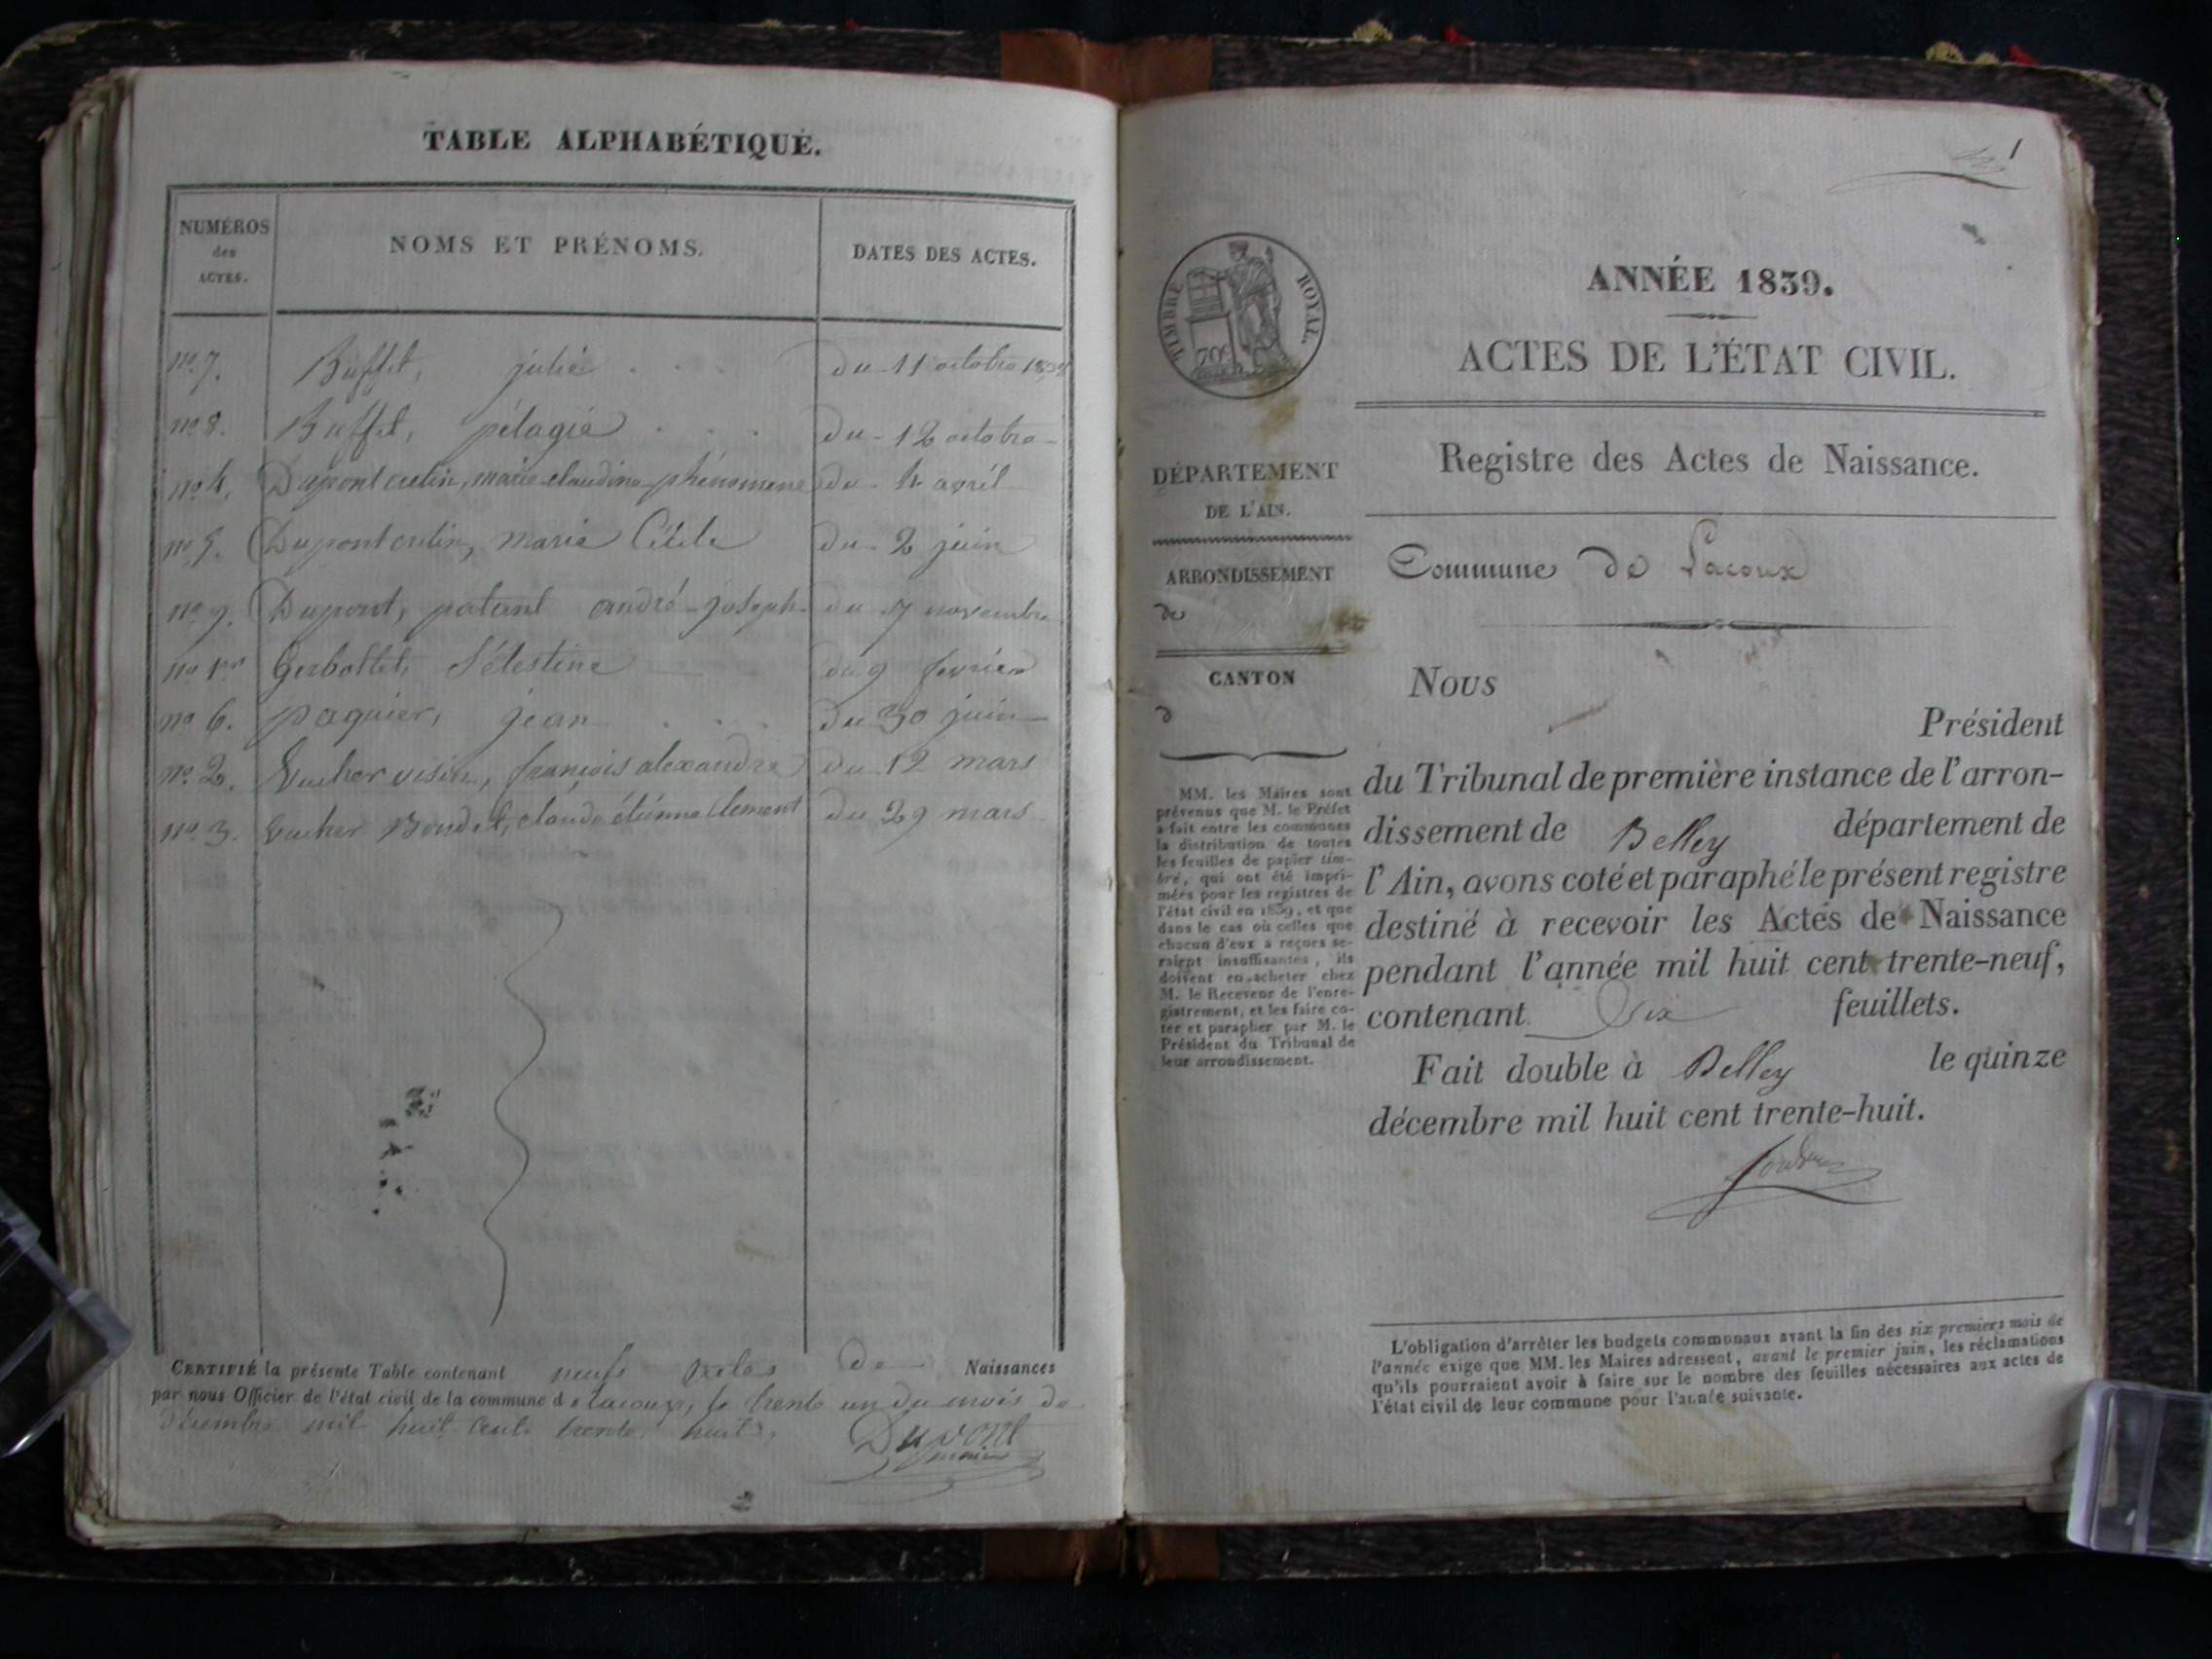 TABLE ALPHABÉTIQUE.
NUMÉROS
des
ACTES.
NOMS ET PRÉNOMS.
DATES DES ACTES.
no. 7. Buffet, julie du 11 octobre 1838
no 8. Buffet, pélagie du 12 octobre
no 4. Dupont cretin, marie claudine phénomene du 4 avril
no 5. Dupont cretin, marie Cécile du 2 juin
no 9. Dupont, patant andré-joseph du 7 novembre
no 1er Gerbollet, Sélestine du 9 fevrier
no 6. paquier, jean du 30 juin
no 2. Vucher visin, françois alexandre du 12 mars
no. 3. Vucher Bondet, claude étienne Clement du 29 mars
CERTIFIÉ la présente Table contenant neufs actes de Naissances
par nous Officier de l'état civil de la commune de lacoux, le trente un du mois de
Décembre mil huit cent trente huit.
Dupont
maire
1
TIMBRE ROYAL.
70c
ANNÉE 1839.
ACTES DE L'ÉTAT CIVIL.
Registre des Actes de Naissance.
Commune de Lacoux
DÉPARTEMENT
DE L'AIN.
ARRONDISSEMENT
de
CANTON
d
MM. les Maires sont
prévenus que M. le Préfet
a fait entre les communes
la distribution de toutes
les feuilles de papier tim-
bré, qui ont été impri-
mées pour les registres de
l'état civil en 1839, et que
dans le cas où celles que
chacun d'eux a reçues se-
raient insuffisantes, ils
doivent en acheter chez
M. le Receveur de l'enre-
gistrement, et les faire co-
ter et parapher par M. le
Président du Tribunal de
leur arrondissement.
Nous
Président
du Tribunal de première instance de l'arron-
dissement de Belley département de
l'Ain, avons coté et paraphé le présent registre
destiné à recevoir les Actes de Naissance
pendant l'année mil huit cent trente-neuf,
contenant Six feuillets.
Fait double à Belley le quinze
décembre mil huit cent trente-huit.
L'obligation d'arrêter les budgets communaux avant la fin des six premiers mois de
l'année exige que MM. les Maires adressent, avant le premier juin, les réclamations
qu'ils pourraient avoir à faire sur le nombre des feuilles nécessaires aux actes de
l'état civil de leur commune pour l'année suivante.